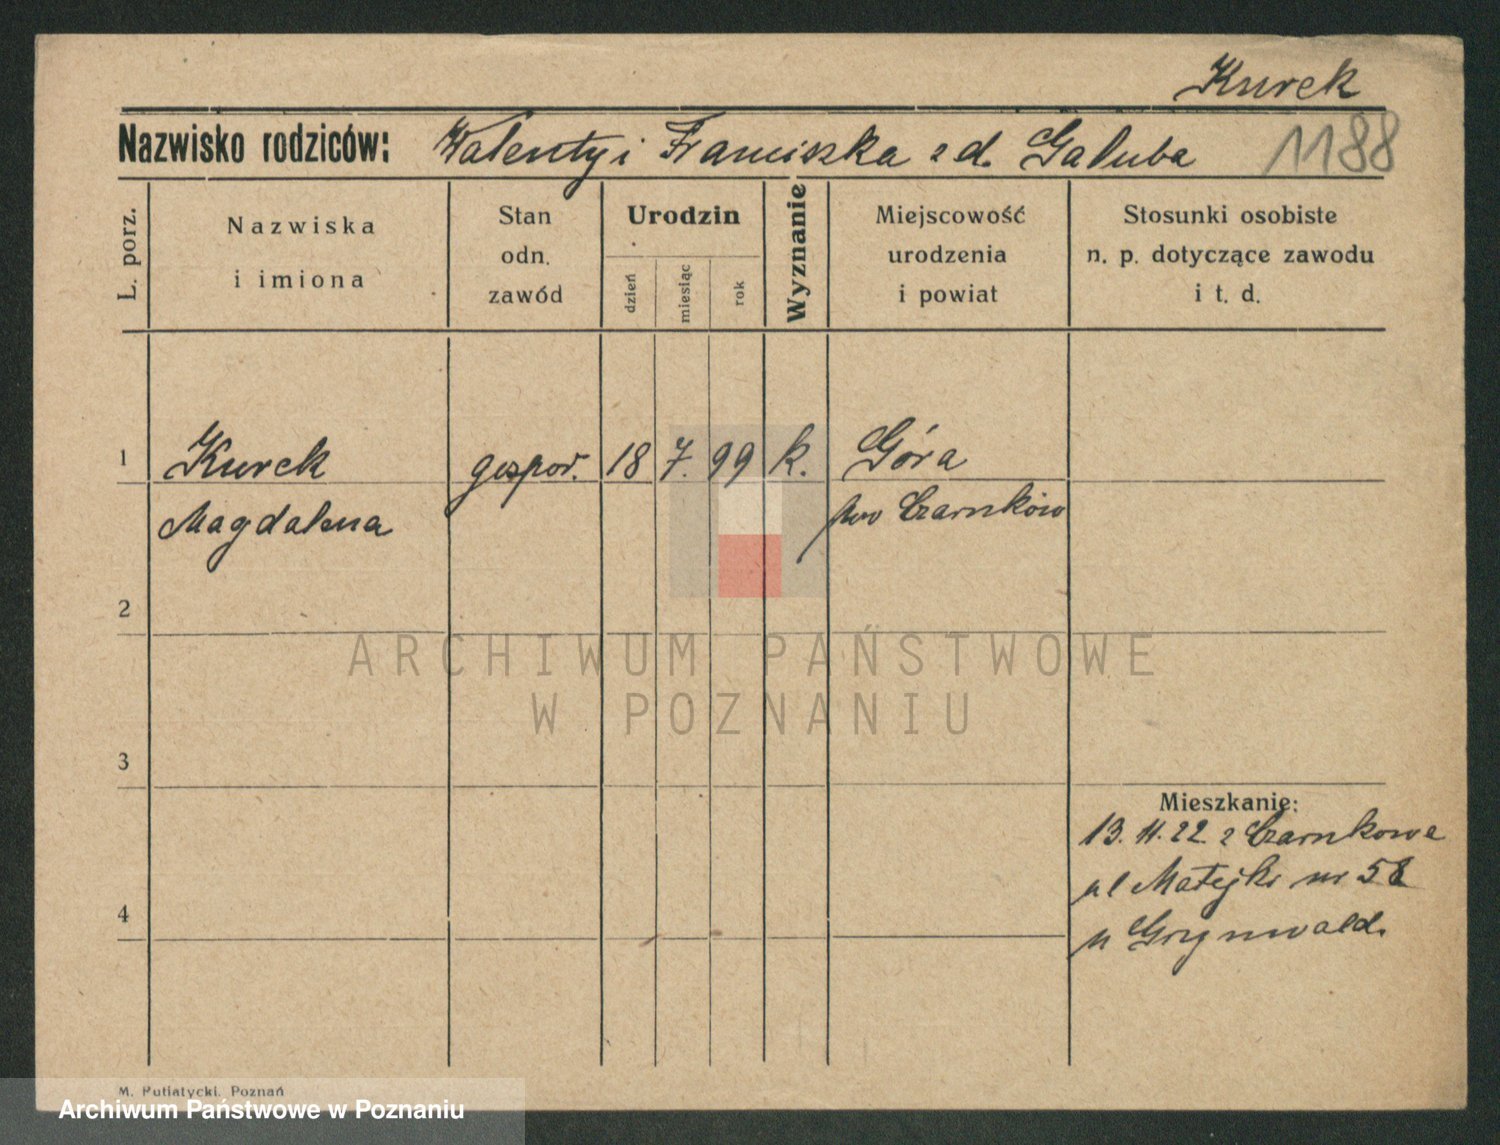 Kurek
Nazwisko rodziców: Walenty i Franciszka z d. Galuba
1188
L. porz.
Nazwiska
i imiona
Stan
odn.
zawód
Urodzin
dzień
miesiąc
rok
Wyznanie
Miejscowość
urodzenia
i powiat
Stosunki osobiste
n. p. dotyczące zawodu
i t. d.
1 Kurek gospod. 18 7. 99 k. Góra
Magdalena pow Czarnków
2
ARCHIWUM PAŃSTWOWE
W POZNANIU
3
Mieszkanie:
13. 11. 22 z Czarnkowa
ul Matejki nr 58
u Grynwald.
4
M. Putiatycki, Poznań
Archiwum Państwowe w Poznaniu